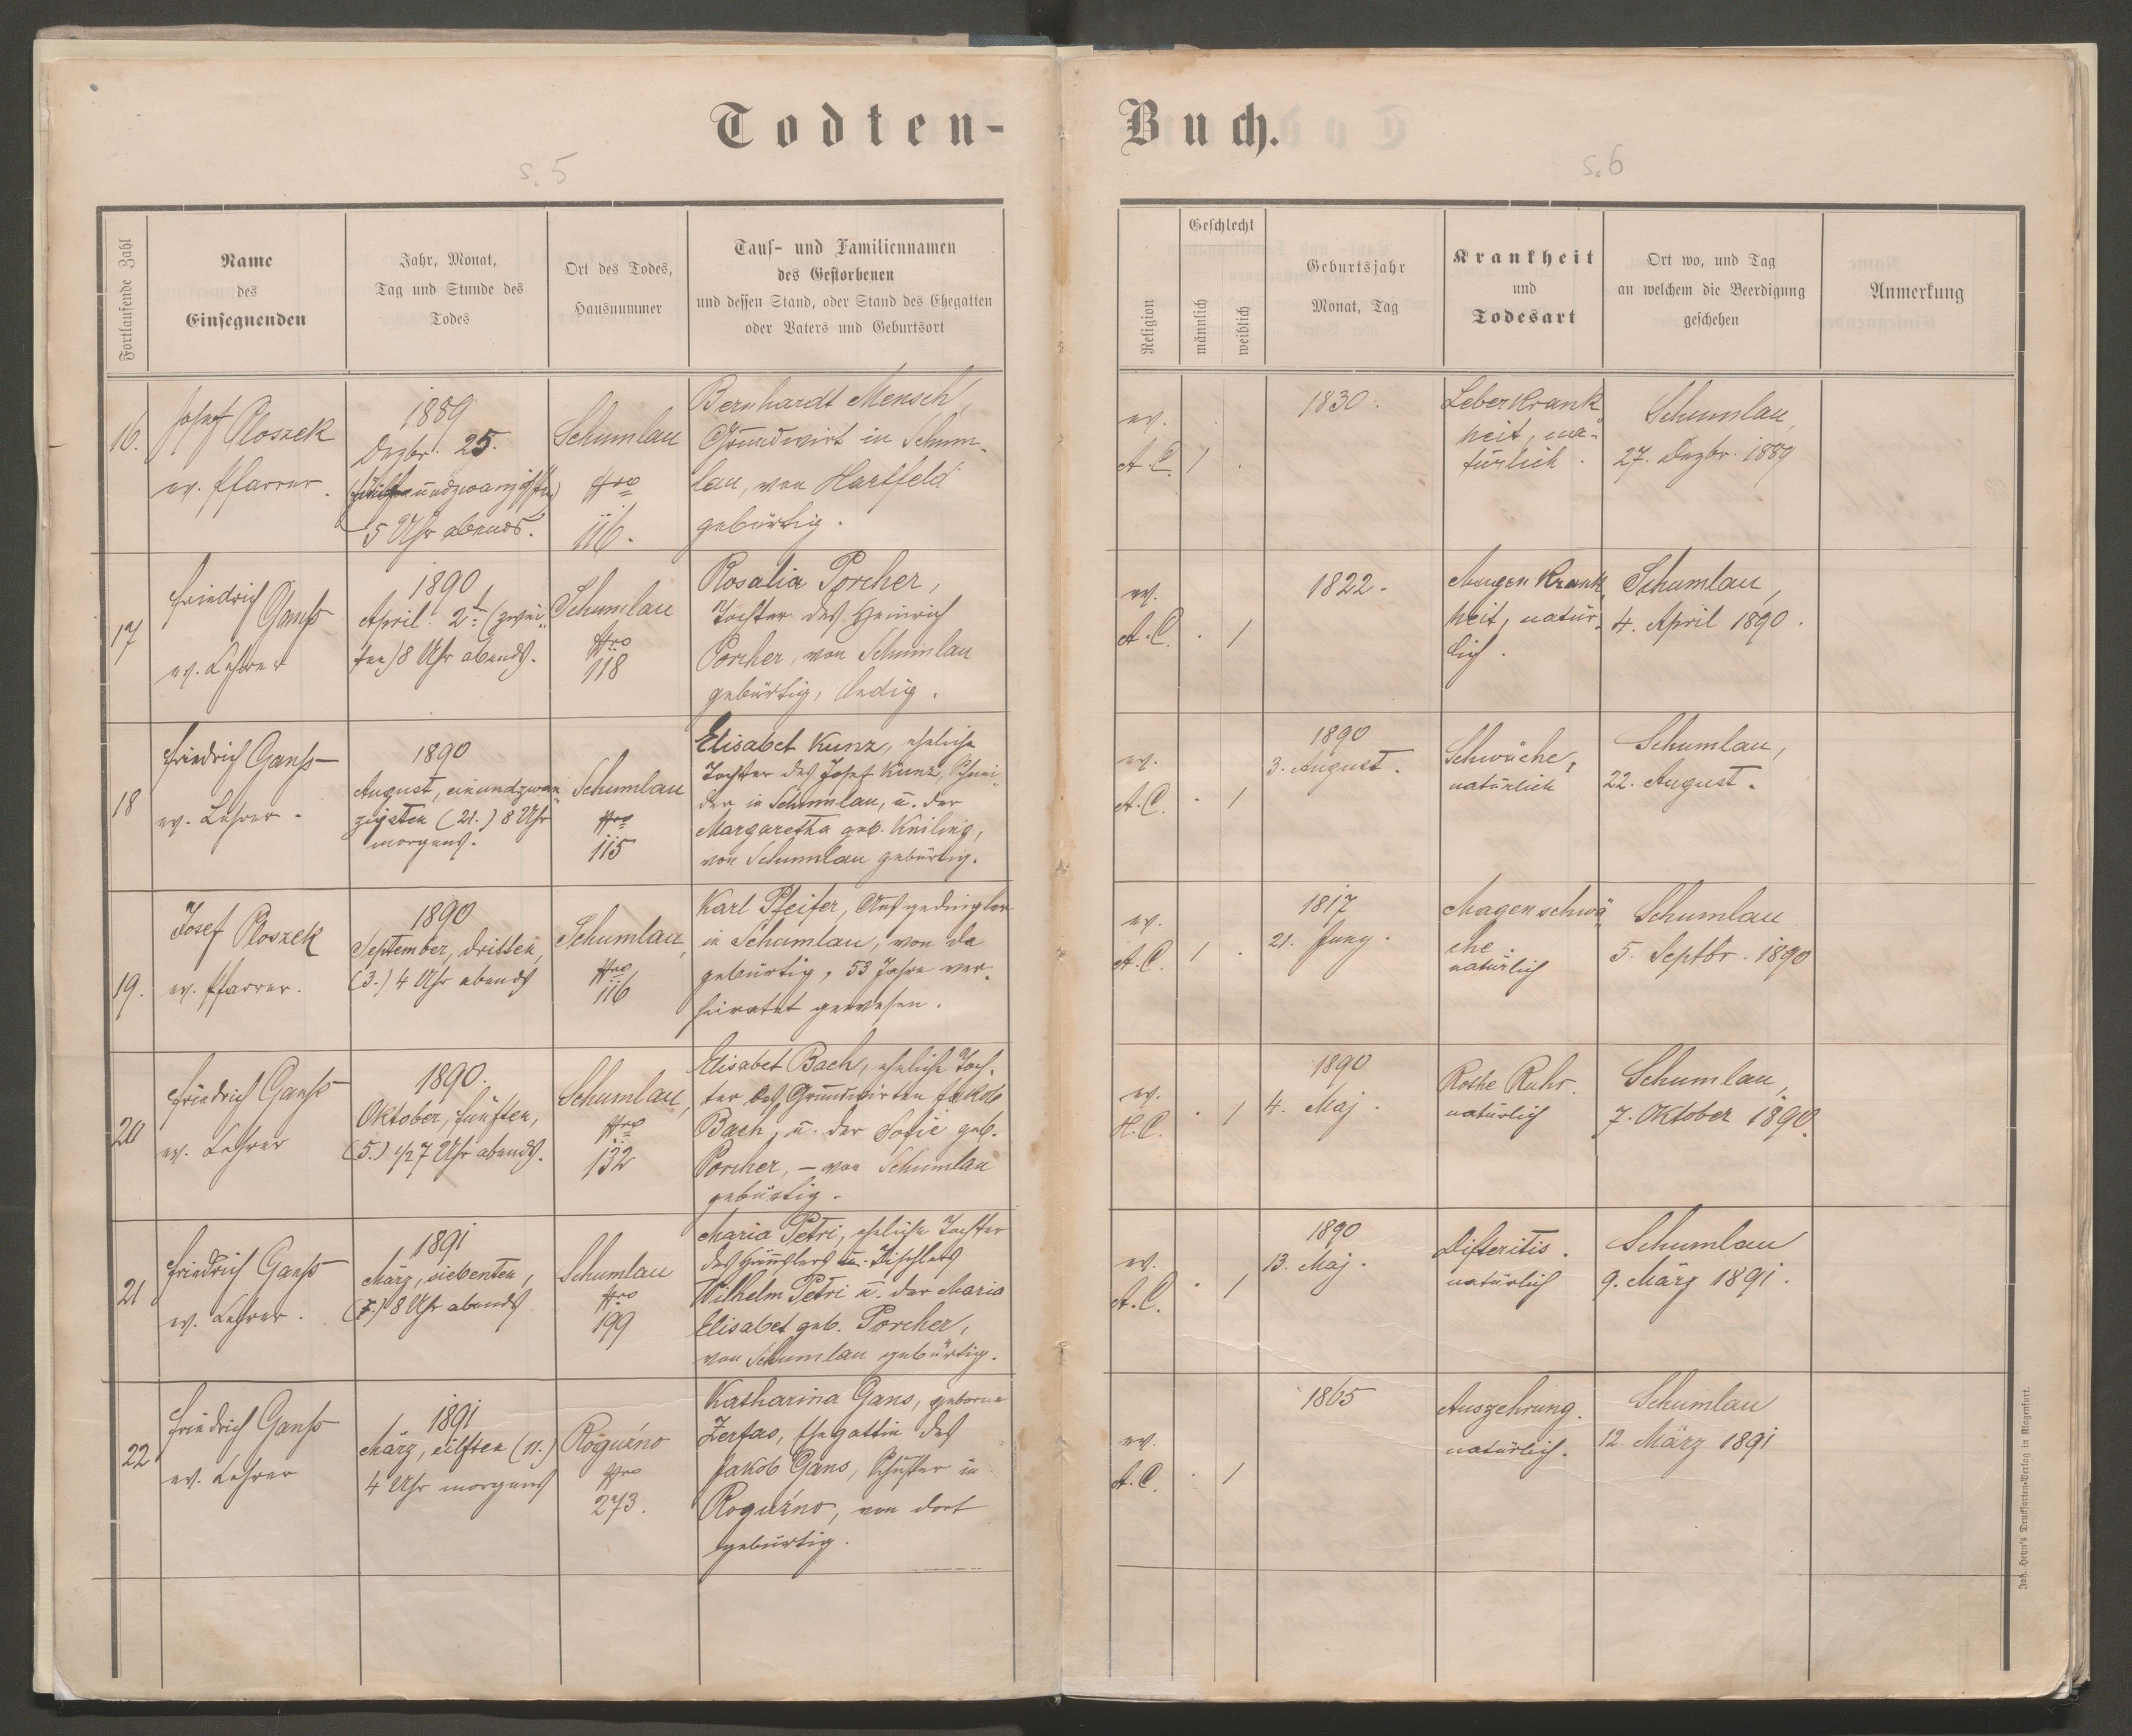 Todten-
Buch.
s. 5
s. 6
Fortlaufende Zahl
Name
des
Einsegnenden
Jahr, Monat,
Tag und Stunde des
Todes
Ort des Todes,
Hausnummer
Tauf- und Familiennamen
des Gestorbenen
und dessen Stand, oder Stand des Ehegatten
oder Vaters und Geburtsort
Religion
Geschlecht
männlich
weiblich
Geburtsjahr
Monat, Tag
Krankheit
und
Todesart
Ort wo, und Tag
an welchem die Beerdigung
geschehen
Anmerkung
16.
Josef Ploszek
ev. Pfarrer.
1889
Dezbr. 25.
(fünfundzwanzigsten)
5 Uhr abends.
Schumlau
Nro
116.
Bernhardt Mensch,
Grundwirt in Schum-
lau, von Hartfeld
gebürtig.
ev.
A.C.
1
.
1830.
Leberkrank-
heit, na-
türlich.
Schumlau,
27. Dezbr. 1889
17
Friedrich
Ganß
ev. Lehrer
1890
April 2ten (zwei-
ten) 8 Uhr abends.
Schumlau
Nro
118
Rosalia Porcher,
Tochter des Heinrich
Porcher, von Schumlau
gebürtig, ledig.
ev.
A.C.
.
1
1822.
Augenkrank-
heit, natür-
lich.
Schumlau,
4. April 1890.
18
Friedrich Ganß
ev. Lehrer.
1890
August, einundzwan-
zigsten (21.) 8 Uhr
morgens.
Schumlau
Nro
115
Elisabet Kunz, eheliche
Tochter des Josef Kunz, Schnei-
der in Schumlau, u. der
Margaretha geb. Kniling,
von Schumlau gebürtig.
ev.
A.C.
.
1
1890
3. August.
Schwäche,
natürlich
Schumlau,
22. August.
19.
Josef Ploszek
ev. Pfarrer.
1890
September, dritten,
(3.) 4 Uhr abends
Schumlau,
Nro
116
Karl Pfeifer, Ausgedingler
in Schumlau, von da
gebürtig, 53 Jahre ver-
heiratet gewesen.
ev.
A.C.
1
.
1817
21. Juny.
Magenschwä-
che.
natürlich
Schumlau
5. Septbr. 1890
20
Friedrich Ganß
ev. Lehrer
1890.
Oktober, fünften,
(5.) 1/2 7 Uhr abends.
Schumlau,
Nro
132
Elisabet Bach, eheliche Toch-
ter des Grundwirten Jakob
Bach, u. der Sofie geb.
Porcher, – von Schumlau
gebürtig.
ev.
H.C.
.
1
1890
4. Maj.
Rothe Ruhr.
natürlich
Schumlau,
7. Oktober 1890.
21
Friedrich Ganß
ev. Lehrer.
1891
März, siebenten,
(7.) 8 Uhr abends
Schumlau
Nro
199
Maria Petri, eheliche Tochter
des Häuslers u. Tischlers
Wilhelm Petri u. der Maria
Elisabet geb. Porcher,
von Schumlau gebürtig.
ev.
A.C.
.
1
1890
13. Maj.
Difteritis.
natürlich
Schumlau
9. März 1891.
22
Friedrich Ganß
ev. Lehrer
1891
März, eilften (11.)
4 Uhr morgens
Roguźno
Nro
273.
Katharina Gans, geborne
Zerfas, Ehegattin des
Jakob Gans, Schuster in
Roguźno, von dort
gebürtig.
ev.
A.C.
.
1
1865
Auszehrung.
natürlich.
Schumlau
12. März 1891
Joh. Heyn's Drucksorten-Verlag in Klagenfurt.